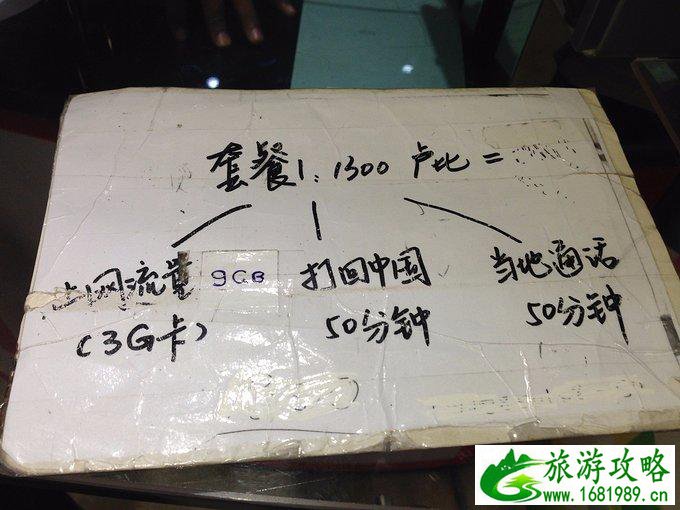 套餐1:1300 卢比=
上网流量 9GB 打回中国 当地通话
(3G卡) 50分钟 50分钟
旅游攻略
www.1681989.cn